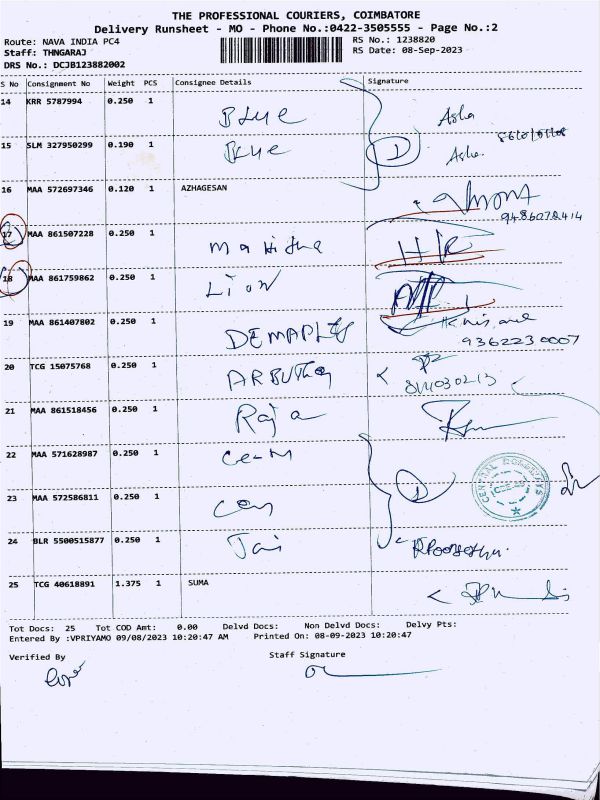 THE PROFESSIONAL COURIERS, COIMBATORE
Delivery Runsheet - MO - Phone No.:0422-3505555 - Page No.:2
Route: NAVA INDIA PC4 RS No.: 1238820
Staff: THNGARAJ RS Date: 08-Sep-2023
DRS No.: DCJB123882002
S No Consignment No Weight PCS Consignee Details Signature
14 KRR 5787994 0.250 1 Blue Asha
15 SLM 327950299 0.190 1 Blue 1 Asha
16 MAA 572697346 0.120 1 AZHAGESAN
17 MAA 861507228 0.250 1
18 MAA 861759862 0.250 1 Lion
19 MAA 861407802 0.250 1 DEMAPLES
9362230007
20 TCG 15075768 0.250 1
21 MAA 861518456 0.250 1 Raja
22 MAA 571628987 0.250 1
23 MAA 572586811 0.250 1
CENTRAL ROADWAYS
24 BLR 5500515877 0.250 1 Jai
25 TCG 40618891 1.375 1 SUMA
Tot Docs: 25 Tot COD Amt: 0.00 Delvd Docs: Non Delvd Docs: Delvy Pts:
Entered By :VPRIYAMO 09/08/2023 10:20:47 AM Printed On: 08-09-2023 10:20:47
Verified By Staff Signature